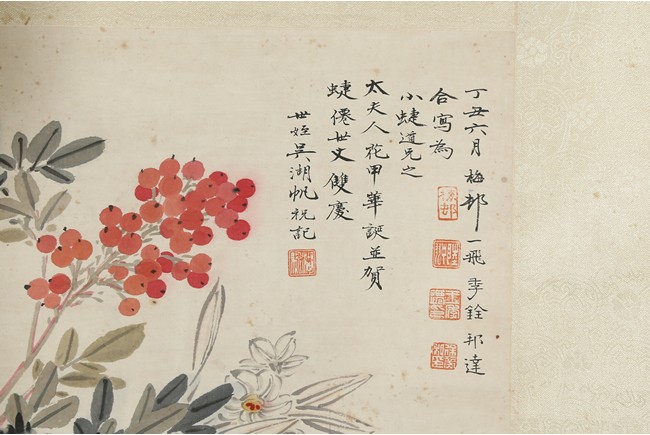 丁丑六月梅邨一飛季銓邦達
合寫為
小蜨道兄之
太夫人花甲華誕並賀
蜨僊世丈雙慶
世姪吳湖帆祝記